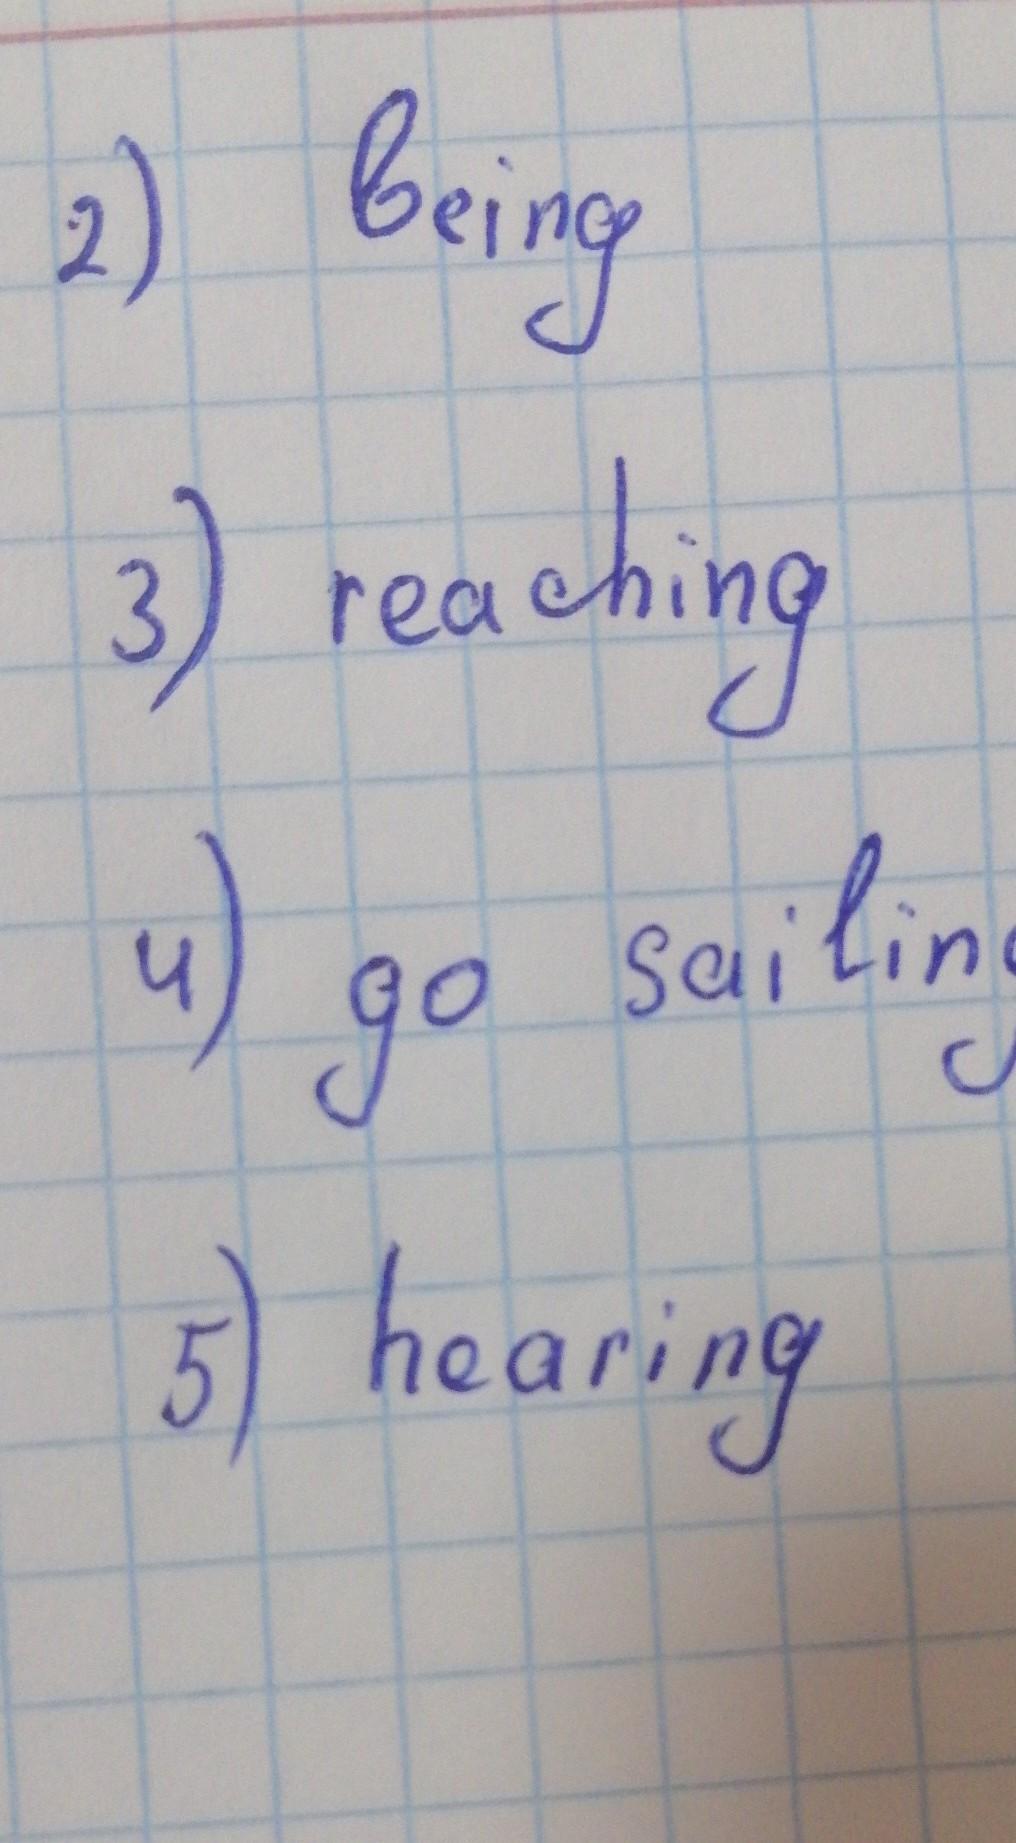 2) being
3) reaching
4) go sailing
5) hearing